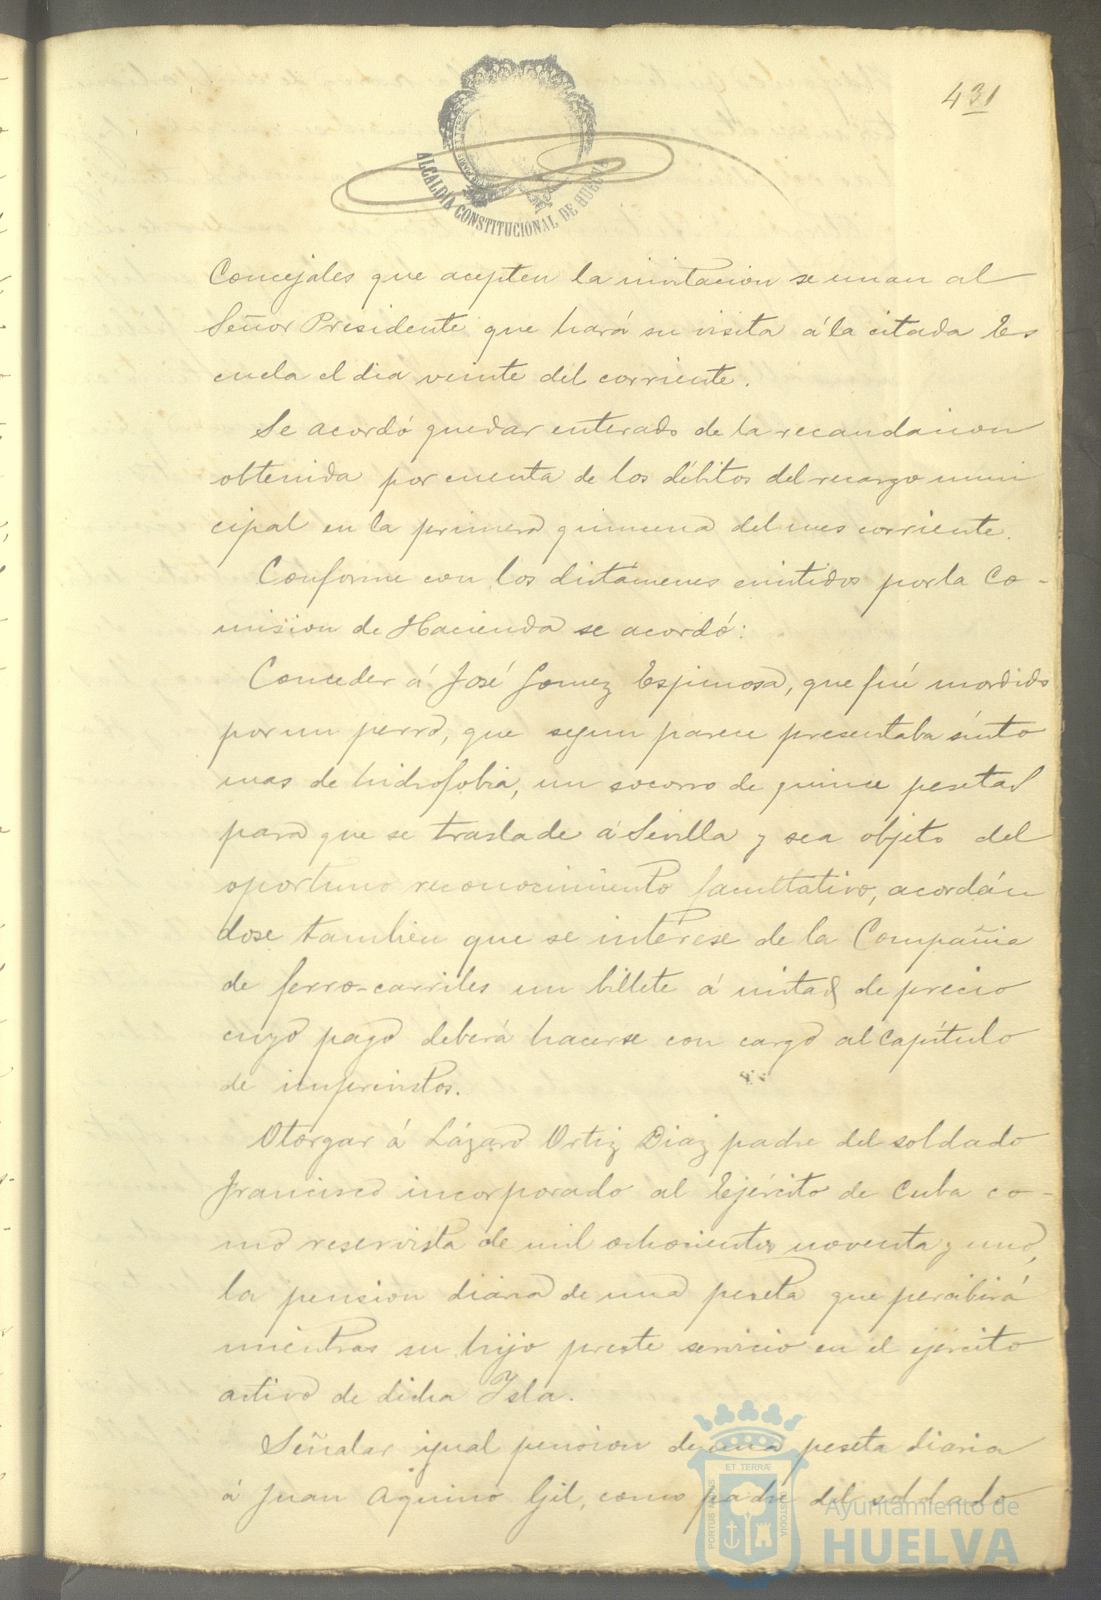 431
ALCALDÍA CONSTITUCIONAL DE HUELVA
Concejales que acepten la invitacion se unan al
Señor Presidente que hará su visita á la citada Es
cuela el dia veinte del corriente.
Se acordó quedar enterado de la recaudacion
obtenida por cuenta de los débitos del recargo muni
cipal en la primera quincena del mes corriente.
Conforme con los dictámenes emitidos por la Co-
mision de Hacienda se acordó:
Conceder á José Gomez Espinosa, que fué mordido
por un perro, que segun parece presentaba sínto
mas de hidrofobia, un socorro de quince pesetas
para que se traslade á Sevilla y sea objeto del
oportuno reconocimiento facultativo, acordán
dose tambien que se interese de la Compañia
de ferro-carriles un billete á mitad de precio
cuyo pago deberá hacerse con cargo al Capítulo
de imprevistos.
Otorgar á Lázaro Ortiz Diaz padre del soldado
Francisco incorporado al Ejército de Cuba co-
mo reservista de mil ochocientos noventa y uno,
la pension diaria de una peseta que percibirá
mientras su hijo preste servicio en el ejército
activo de dicha Isla.
Señalar igual pension de una peseta diaria
á Juan Aquino Gil, como padre del soldado
ET TERRÆ
PORTUS MARIS
CUSTODIA
Ayuntamiento de
HUELVA